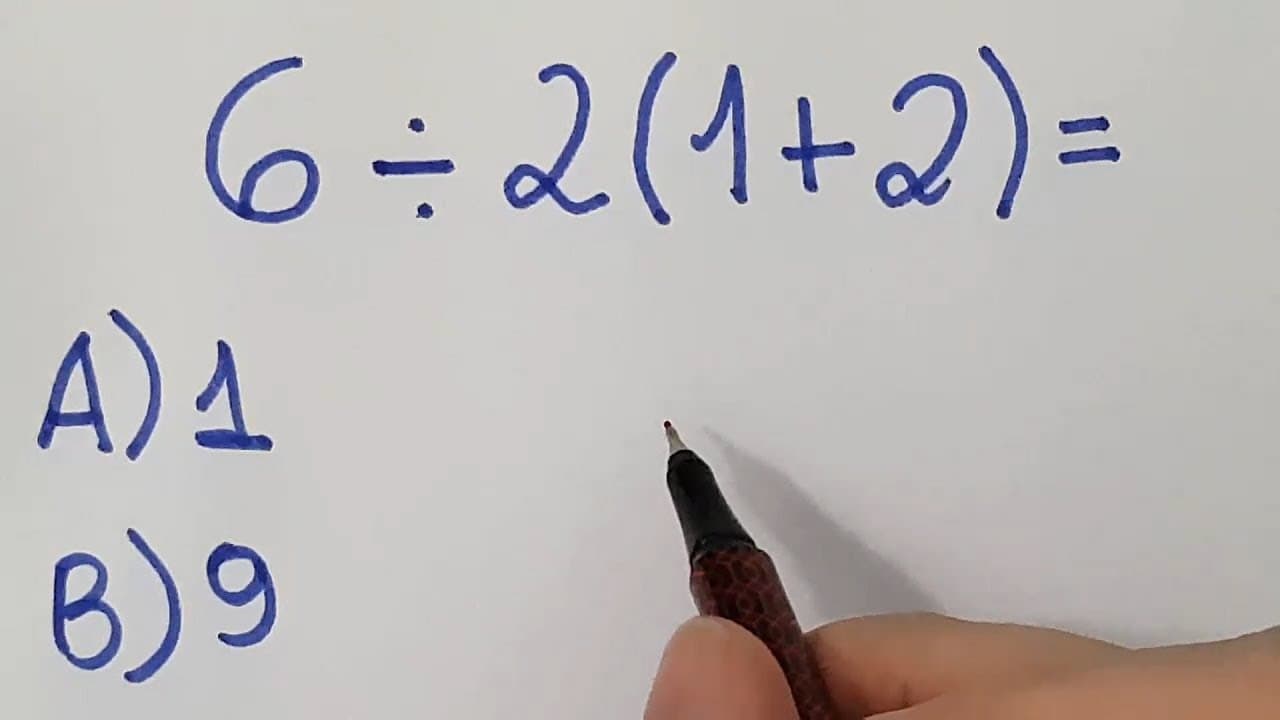 6÷2(1+2)=
A) 1
B) 9